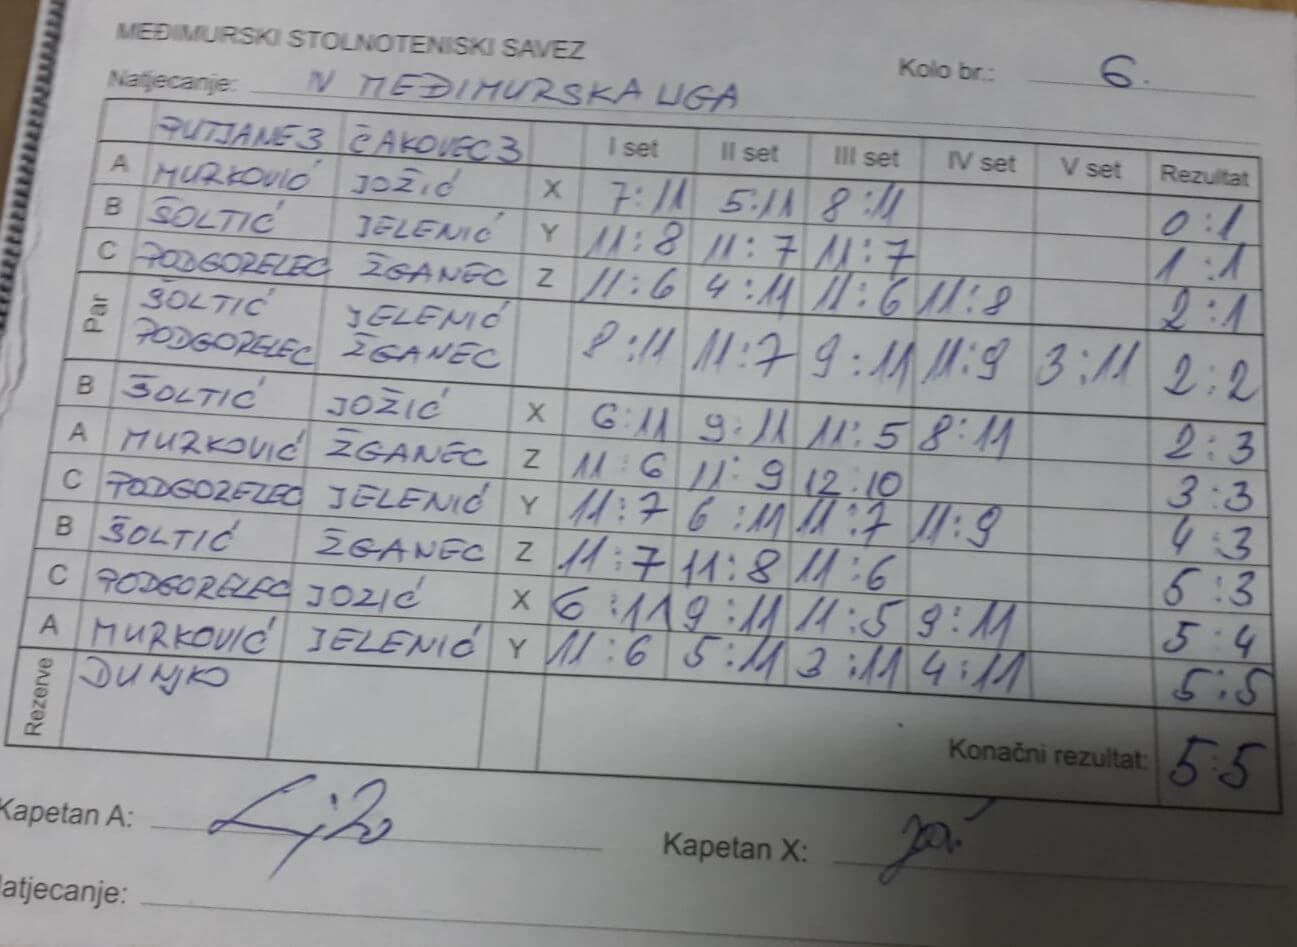 MEĐIMURSKI STOLNOTENISKI SAVEZ
Kolo br.: 6.
Natjecanje: IV MEĐIMURSKA LIGA
PUTJANE 3 ČAKOVEC 3 I set II set III set IV set V set Rezultat
A MURKOVIĆ JOŽIĆ X 7:11 5:11 8:11 0:1
B ŠOLTIĆ JELENIĆ Y 11:8 11:7 11:7 1:1
C PODGORELEC ŽGANEC Z 11:6 4:11 11:6 11:8 2:1
Par ŠOLTIĆ JELENIĆ
PODGORELEC ŽGANEC 8:11 11:7 9:11 11:9 3:11 2:2
B ŠOLTIĆ JOŽIĆ X 6:11 9:11 11:5 8:11 2:3
A MURKOVIĆ ŽGANEC Z 11:6 11:9 12:10 3:3
C PODGORELEC JELENIĆ Y 11:7 6:11 11:7 11:9 4:3
B ŠOLTIĆ ŽGANEC Z 11:7 11:8 11:6 5:3
C PODGORELEC JOZIĆ X 6:11 9:11 11:5 9:11 5:4
A MURKOVIĆ JELENIĆ Y 11:6 5:11 3:11 4:11 5:5
Rezerve DUNJKO
Konačni rezultat: 5:5
Kapetan A:
Kapetan X:
Natjecanje: